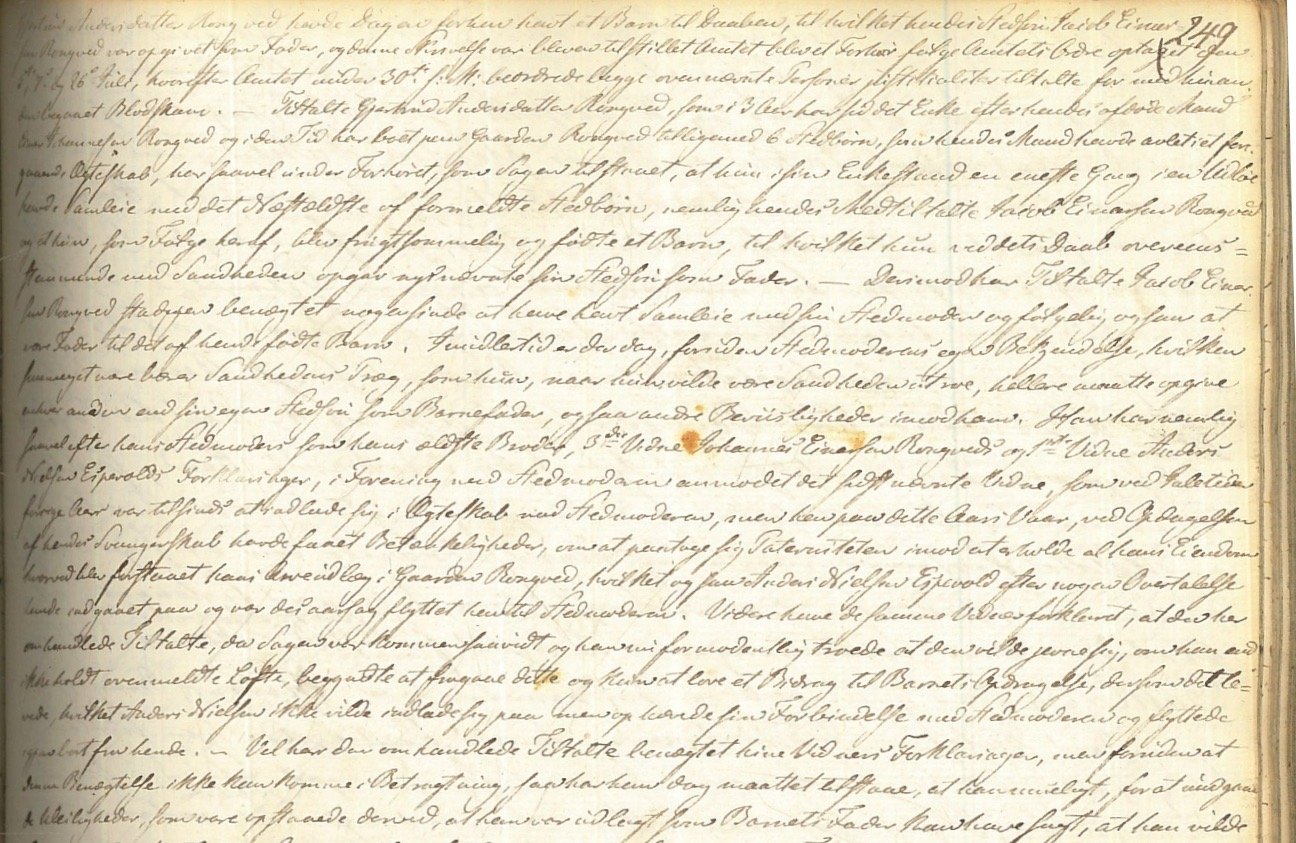 Andersdatter Rongved havde Dagen forhen havt et Barn til Daaben, til hvilket hendes Stedsøn Jacob Einar- 249
sen Rongved var opgivet som Fader, og denne var bleven tilstillet Amtet blev et Forhør følge Amtets Ordre optaget den
og 26 Juli, hvorefter Amtet under 30te beordrede begge ovennævnte Personer justitialiter tiltalte for med hinan-
den begaaet Blodskam. — Tiltalte Gjertrud Andersdatter Rongved, som i 3 Aar har siddet Enke efter hendes afdøde Mand
Einar Johannesen Rongved og i den Tid har boet paa Gaarden Rongved tilligemed 6 Stedbørn, som hendes Mand havde avlet i et fore-
gaaende Ægteskab, har saavel under Forhøret, som Sagen tilstaaet, at hun i sin Enkestand en eneste Gang i en Udløe
havde Samleie med det Næstældste af formeldte Stedbørn, nemlig hendes Medtiltalte Jacob Einarsen Rongved
og at hun, som Følge heraf, blev frugtsommelig og fødte et Barn, til hvilket hun ved dets Daab overeens-
stemmende med Sandheden opgav nysnævnte sin Stedsøn som Fader. — Derimod har Tiltalte Jacob Einar-
sen Rongved stadigen benægtet nogensinde at have havt Samleie med sin Stedmoder og følgelig ogsaa at
være Fader til det af hende fødte Barn. Imidlertid er der dog, foruden Stedmoderens egen Bekjendelse, hvilken
saameget mere bærer Sandhedens Præg, som hun, naar hun vilde være Sandheden utroe, hellere maatte opgive
enhver anden end sin egen Stedsøn som Barnefader, ogsaa andre Beviisligheder imod ham. Han har nemlig
saavel efter hans Stedmoders som hans ældste Broder, 3die Vidne Johannes Einarsen Rongveds og 1ste Vidne Anders
Nielsen Espevolds Forklaringer, i Forening med Stedmoderen anmodet det sidstnævnte Vidne, som ved Juletider
forrige Aar var tilsinds at indlade sig i Ægteskab med Stedmoderen, men hen paa dette Aars Vaar, ved Opdagelsen
af hendes Svangerskab havde fattet Betænkeligheder, om at paatage sig Paterniteten imod at erholde al hans Eiendom
hvorved blev forstaaet hans Arvendlæg i Gaarden Rongved, hvilket ogsaa Anders Nielsen Espevold efter nogen Overtalelse
havde indgaaet paa og var desaarsag flyttet hen til Stedmoderen. Videre have de samme Vidner forklaret, at den her
omhandlede Tiltalte, da Sagen var kommen saavidt og han nu formodentlig troede at den vilde jevne sig, om han end
ikke holdt ovenmeldte Løfte, begyndte at fragaae dette og kun at love et Bidrag til Barnets Opdragelse, dersom det le-
vede, hvilket Anders Nielsen ikke vilde indlade sig paa men ophævede sin Forbindelse med Stedmoderen og flyttede
igjen bort fra hende. — Vel har den omhandlede Tiltalte benægtet hine Vidners Forklaringer, men foruden at
denne Benægtelse ikke kan komme i Betragtning, saa har han dog maattet tilstaae, at han muligt, for at undgaae
de Uleiligheder, som vare opstaaede derved, at han var udlagt som Barnets Fader kan have sagt, at han vilde